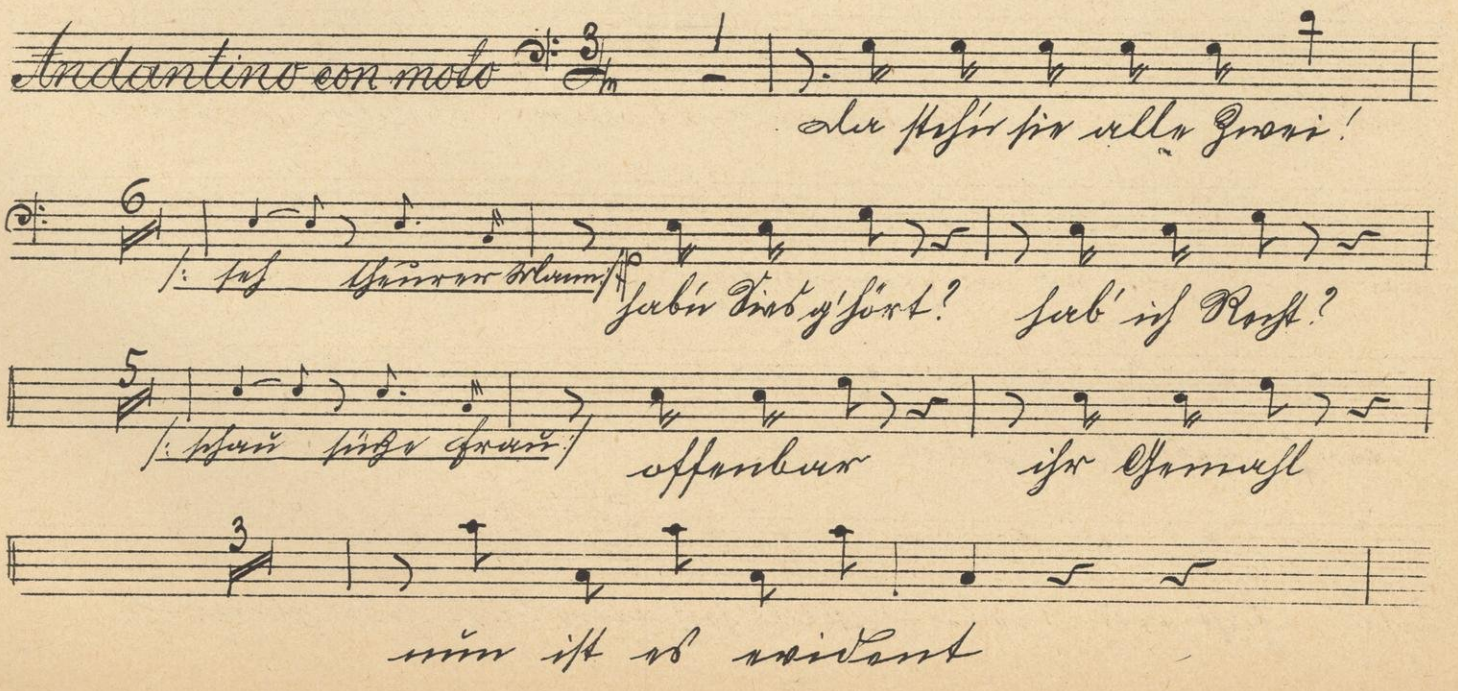 Andantino con moto 3/4 1
da steh'n sie alle Zwei!
6
/: seh theurer Mann :/ hab'n Sies g'hört? hab' ich Recht?
5
/: schau süße Frau :/ offenbar ihr Gemahl
3
nun ist es evident